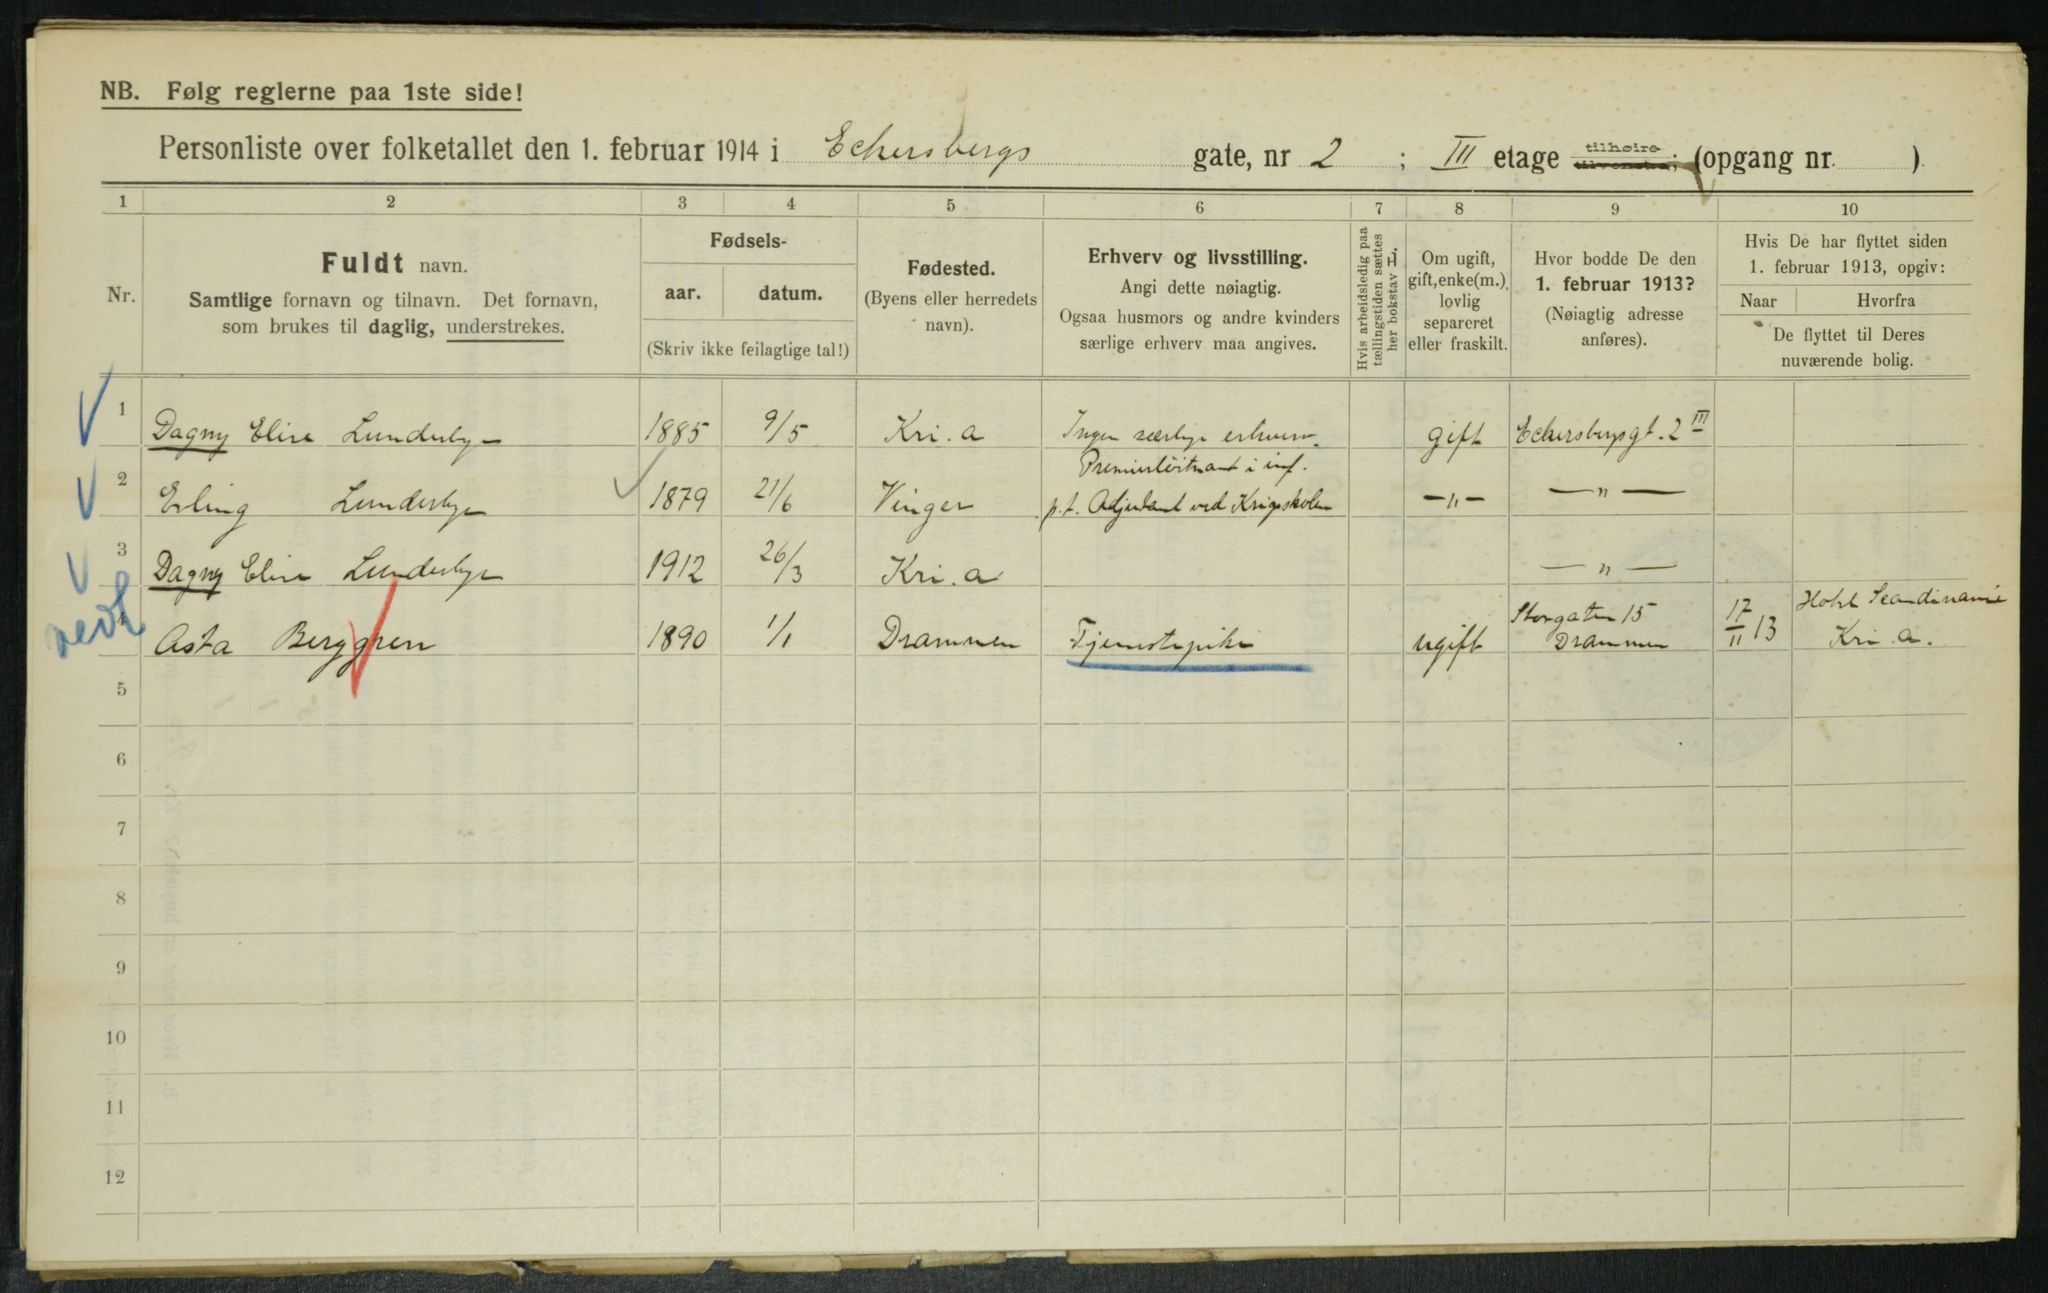 NB. Følg reglerne paa 1ste side!
Personliste over folketallet den 1. februar 1914 i Eckersbergs gate, nr 2 ; III etage tilhøire tilvenstre; (opgang nr. )
1 2 3 4 5 6 7 8 9 10
Nr.
Fuldt navn.
Samtlige fornavn og tilnavn. Det fornavn,
som brukes til daglig, understrekes.
Fødsels-
aar. datum.
(Skriv ikke feilagtige tal!)
Fødested.
(Byens eller herredets
navn).
Erhverv og livsstilling.
Angi dette nøiagtig.
Ogsaa husmors og andre kvinders
særlige erhverv maa angives.
Hvis arbeidsledig paa
tællingstiden sættes
her bokstav L.
Om ugift,
gift, enke(m.),
lovlig
separeret
eller fraskilt.
Hvor bodde De den
1. februar 1913?
(Nøiagtig adresse
anføres).
Hvis De har flyttet siden
1. februar 1913, opgiv:
Naar Hvorfra
De flyttet til Deres
nuværende bolig.
1 Dagny Elise Lunderbye 1885 9/5 Kri.a Ingen særlige erhverv. gift Eckersbergsgt. 2 III
Premierløitnant i inf.
2 Erling Lunderbye 1879 21/6 Vinger p.t. Adjutant ved Krigsskolen —"— —"—
3 Dagny Elise Lunderbye 1912 26/3 Kri.a —"—
Storgaten 15 Hotel Scandinavie
4 Asta Berggren 1890 1/1 Drammen Tjenestepike ugift Drammen 17/11 13 Kri.a.
5
6
7
8
9
10
11
12